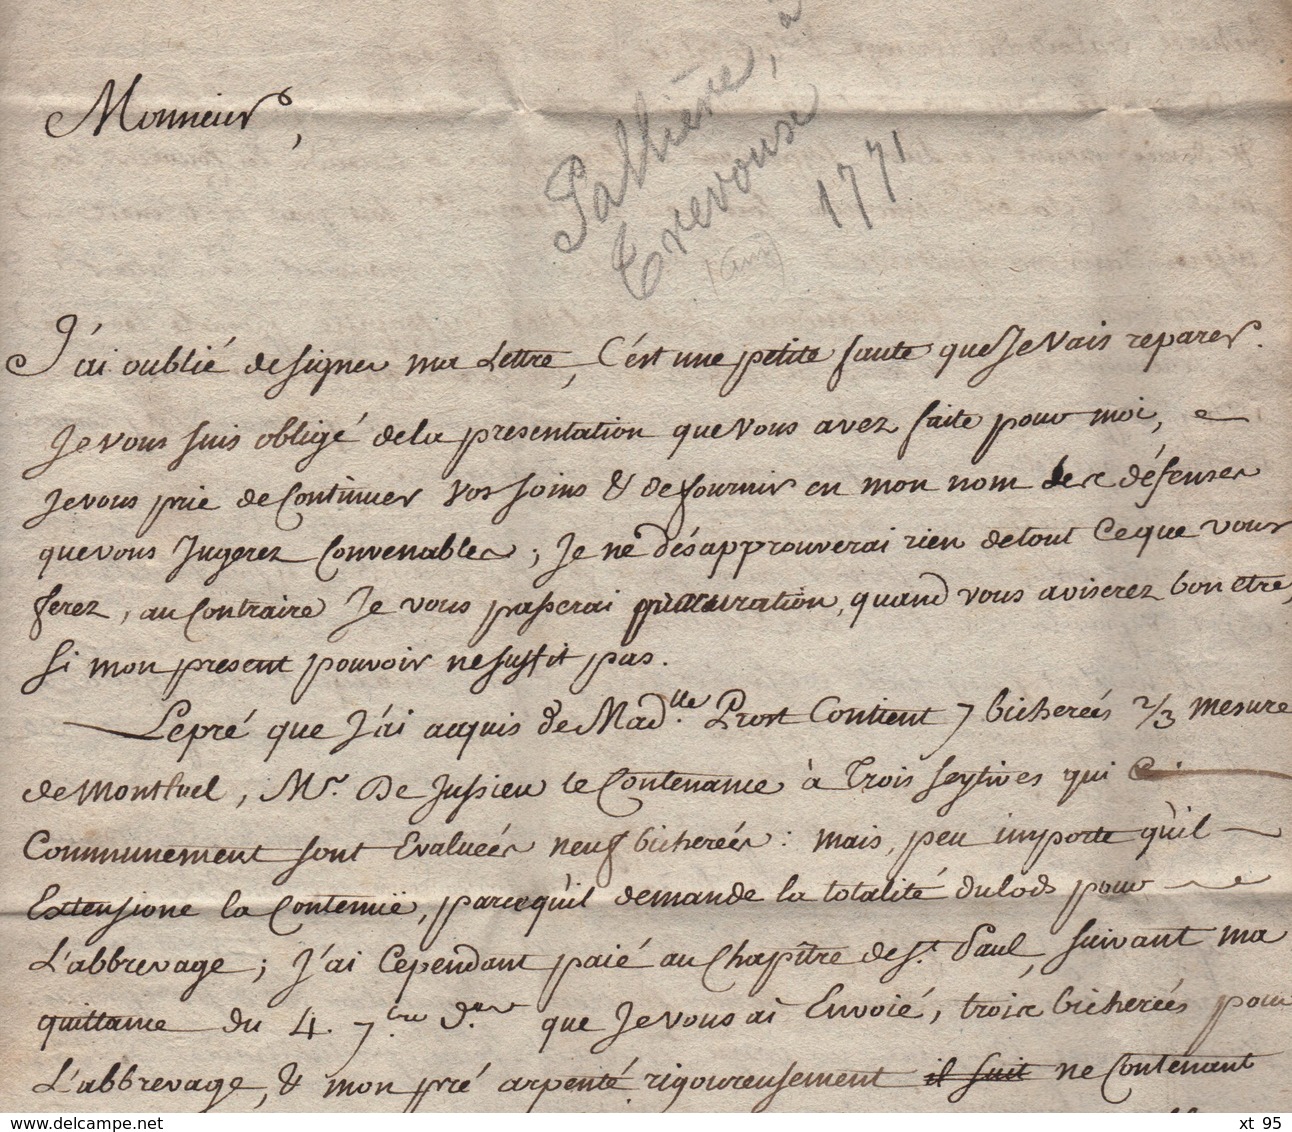 Monsieur,
Palhière, à
Trevouse
(Ain)
1771
J'ai oublié de signer ma Lettre, C'est une petite faute que Je Vais reparer.
Je vous suis obligé de la presentation que Vous avez faite pour moi, e
Je vous prie de Continuer Vos soins & de fournir en mon nom les défenses
que vous Jugerez Convenables ; Je ne désapprouverai rien de tout Ce que vous
ferez, au Contraire Je vous passerai procuration, quand vous aviserez bon etre,
si mon present pouvoir ne suffit pas.
Le pré que J'ai acquis de Mad.lle Prost Contient 7 bicherées 2/3 mesure
de Montluel, Mr. De Jussieu le Contenance à Trois Seytives qui
Communement sont Evaluées neuf bicherées : mais, peu importe qu'il
Extensione la Contenuë, parcequ'il demande la totalité du lods pour
L'abbrevage ; J'ai Cependant paié au Chapitre de St. Paul, suivant ma
quittance du 4. 7.bre d.er que Je vous ai Envoié, trois bicherées pour
L'abbrevage, & mon pré arpenté rigoureusement il suit ne Contenant
xt 95